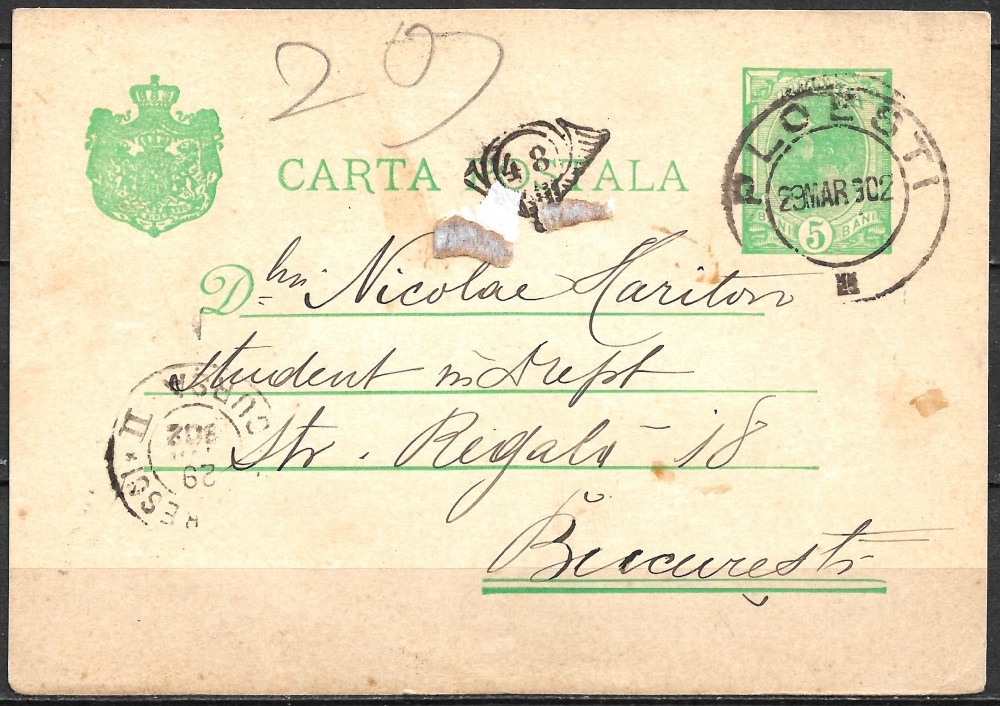 20
CARTA POSTALA
48
PLOESTI
29MAR902
5
BANI BANI
Dlui Nicolae Hariton
student in Drept
Str. Regală 18
București
II
29
902